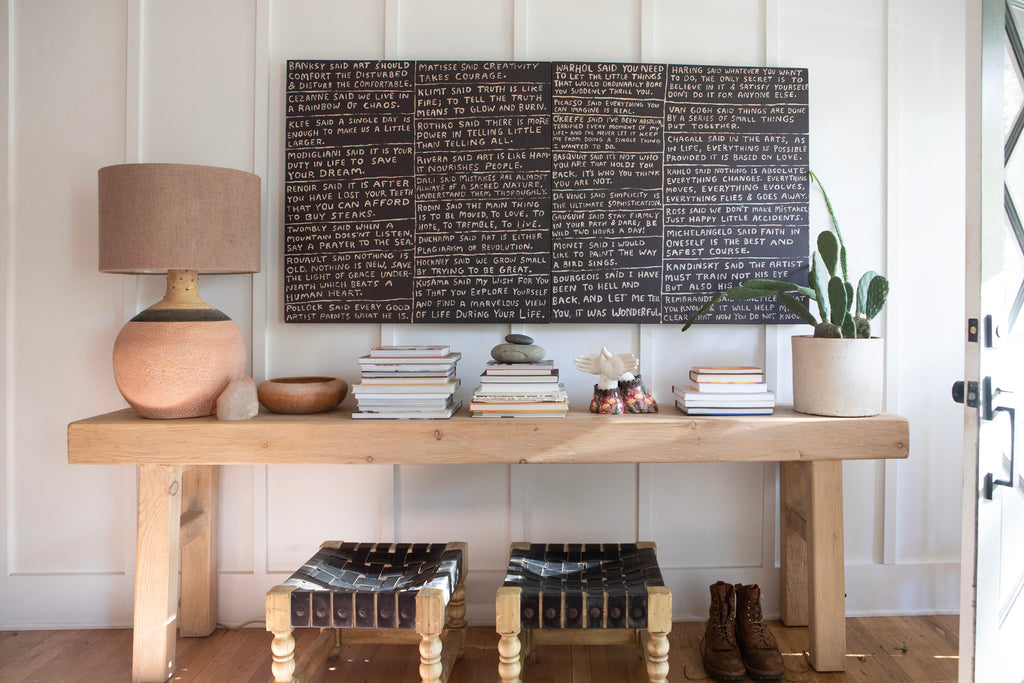 BANKSY SAID ART SHOULD
COMFORT THE DISTURBED
& DISTURB THE COMFORTABLE.
CEZANNE SAID WE LIVE IN
A RAINBOW OF CHAOS.
KLEE SAID A SINGLE DAY IS
ENOUGH TO MAKE US A LITTLE
LARGER.
MODIGLIANI SAID IT IS YOUR
DUTY IN LIFE TO SAVE
YOUR DREAM.
RENOIR SAID IT IS AFTER
YOU HAVE LOST YOUR TEETH
THAT YOU CAN AFFORD
TO BUY STEAKS.
TWOMBLY SAID WHEN A
MOUNTAIN DOESN'T LISTEN,
SAY A PRAYER TO THE SEA.
ROUAULT SAID NOTHING IS
OLD, NOTHING IS NEW, SAVE
THE LIGHT OF GRACE UNDER-
NEATH WHICH BEATS A
HUMAN HEART.
POLLOCK SAID EVERY GOOD
ARTIST PAINTS WHAT HE IS.
MATISSE SAID CREATIVITY
TAKES COURAGE.
KLIMT SAID TRUTH IS LIKE
FIRE; TO TELL THE TRUTH
MEANS TO GLOW AND BURN.
ROTHKO SAID THERE IS MORE
POWER IN TELLING LITTLE
THAN TELLING ALL.
RIVERA SAID ART IS LIKE HAM-
IT NOURISHES PEOPLE.
DALI SAID MISTAKES ARE ALMOST
ALWAYS OF A SACRED NATURE,
UNDERSTAND THEM THOROUGHLY.
RODIN SAID THE MAIN THING
IS TO BE MOVED, TO LOVE, TO
HOPE, TO TREMBLE, TO LIVE.
DUCHAMP SAID ART IS EITHER
PLAGIARISM OR REVOLUTION.
HOCKNEY SAID WE GROW SMALL
BY TRYING TO BE GREAT.
KUSAMA SAID MY WISH FOR YOU
IS THAT YOU EXPLORE YOURSELF
AND FIND A MARVELOUS VIEW
OF LIFE DURING YOUR LIFE.
WARHOL SAID YOU NEED
TO LET THE LITTLE THINGS
THAT WOULD ORDINARILY BORE
YOU SUDDENLY THRILL YOU.
PICASSO SAID EVERYTHING YOU
CAN IMAGINE IS REAL.
O'KEEFE SAID I'VE BEEN ABSOLUTELY
TERRIFIED EVERY MOMENT OF MY
LIFE- AND I'VE NEVER LET IT KEEP
ME FROM DOING A SINGLE THING
I WANTED TO DO.
BASQUIAT SAID IT'S NOT WHO
YOU ARE THAT HOLDS YOU
BACK, IT'S WHO YOU THINK
YOU ARE NOT.
DA VINCI SAID SIMPLICITY IS
THE ULTIMATE SOPHISTICATION.
GAUGUIN SAID STAY FIRMLY
IN YOUR PATH & DARE; BE
WILD TWO HOURS A DAY!
MONET SAID I WOULD
LIKE TO PAINT THE WAY
A BIRD SINGS.
BOURGEOIS SAID I HAVE
BEEN TO HELL AND
BACK, AND LET ME TELL
YOU, IT WAS WONDERFUL.
HARING SAID WHATEVER YOU WANT
TO DO, THE ONLY SECRET IS TO
BELIEVE IN IT & SATISFY YOURSELF
DON'T DO IT FOR ANYONE ELSE.
VAN GOGH SAID THINGS ARE DONE
BY A SERIES OF SMALL THINGS
PUT TOGETHER.
CHAGALL SAID IN THE ARTS, AS
IN LIFE, EVERYTHING IS POSSIBLE
PROVIDED IT IS BASED ON LOVE.
KAHLO SAID NOTHING IS ABSOLUTE.
EVERYTHING CHANGES. EVERYTHING
MOVES, EVERYTHING EVOLVES,
EVERYTHING FLIES & GOES AWAY.
ROSS SAID WE DON'T MAKE MISTAKES
JUST HAPPY LITTLE ACCIDENTS.
MICHELANGELO SAID FAITH IN
ONESELF IS THE BEST AND
SAFEST COURSE.
KANDINSKY SAID THE ARTIST
MUST TRAIN NOT HIS EYE
BUT ALSO HIS
REMBRANDT SAID PRACTICE
YOU KNOW & IT WILL HELP
CLEAR WHAT NOW YOU DO NOT KNOW